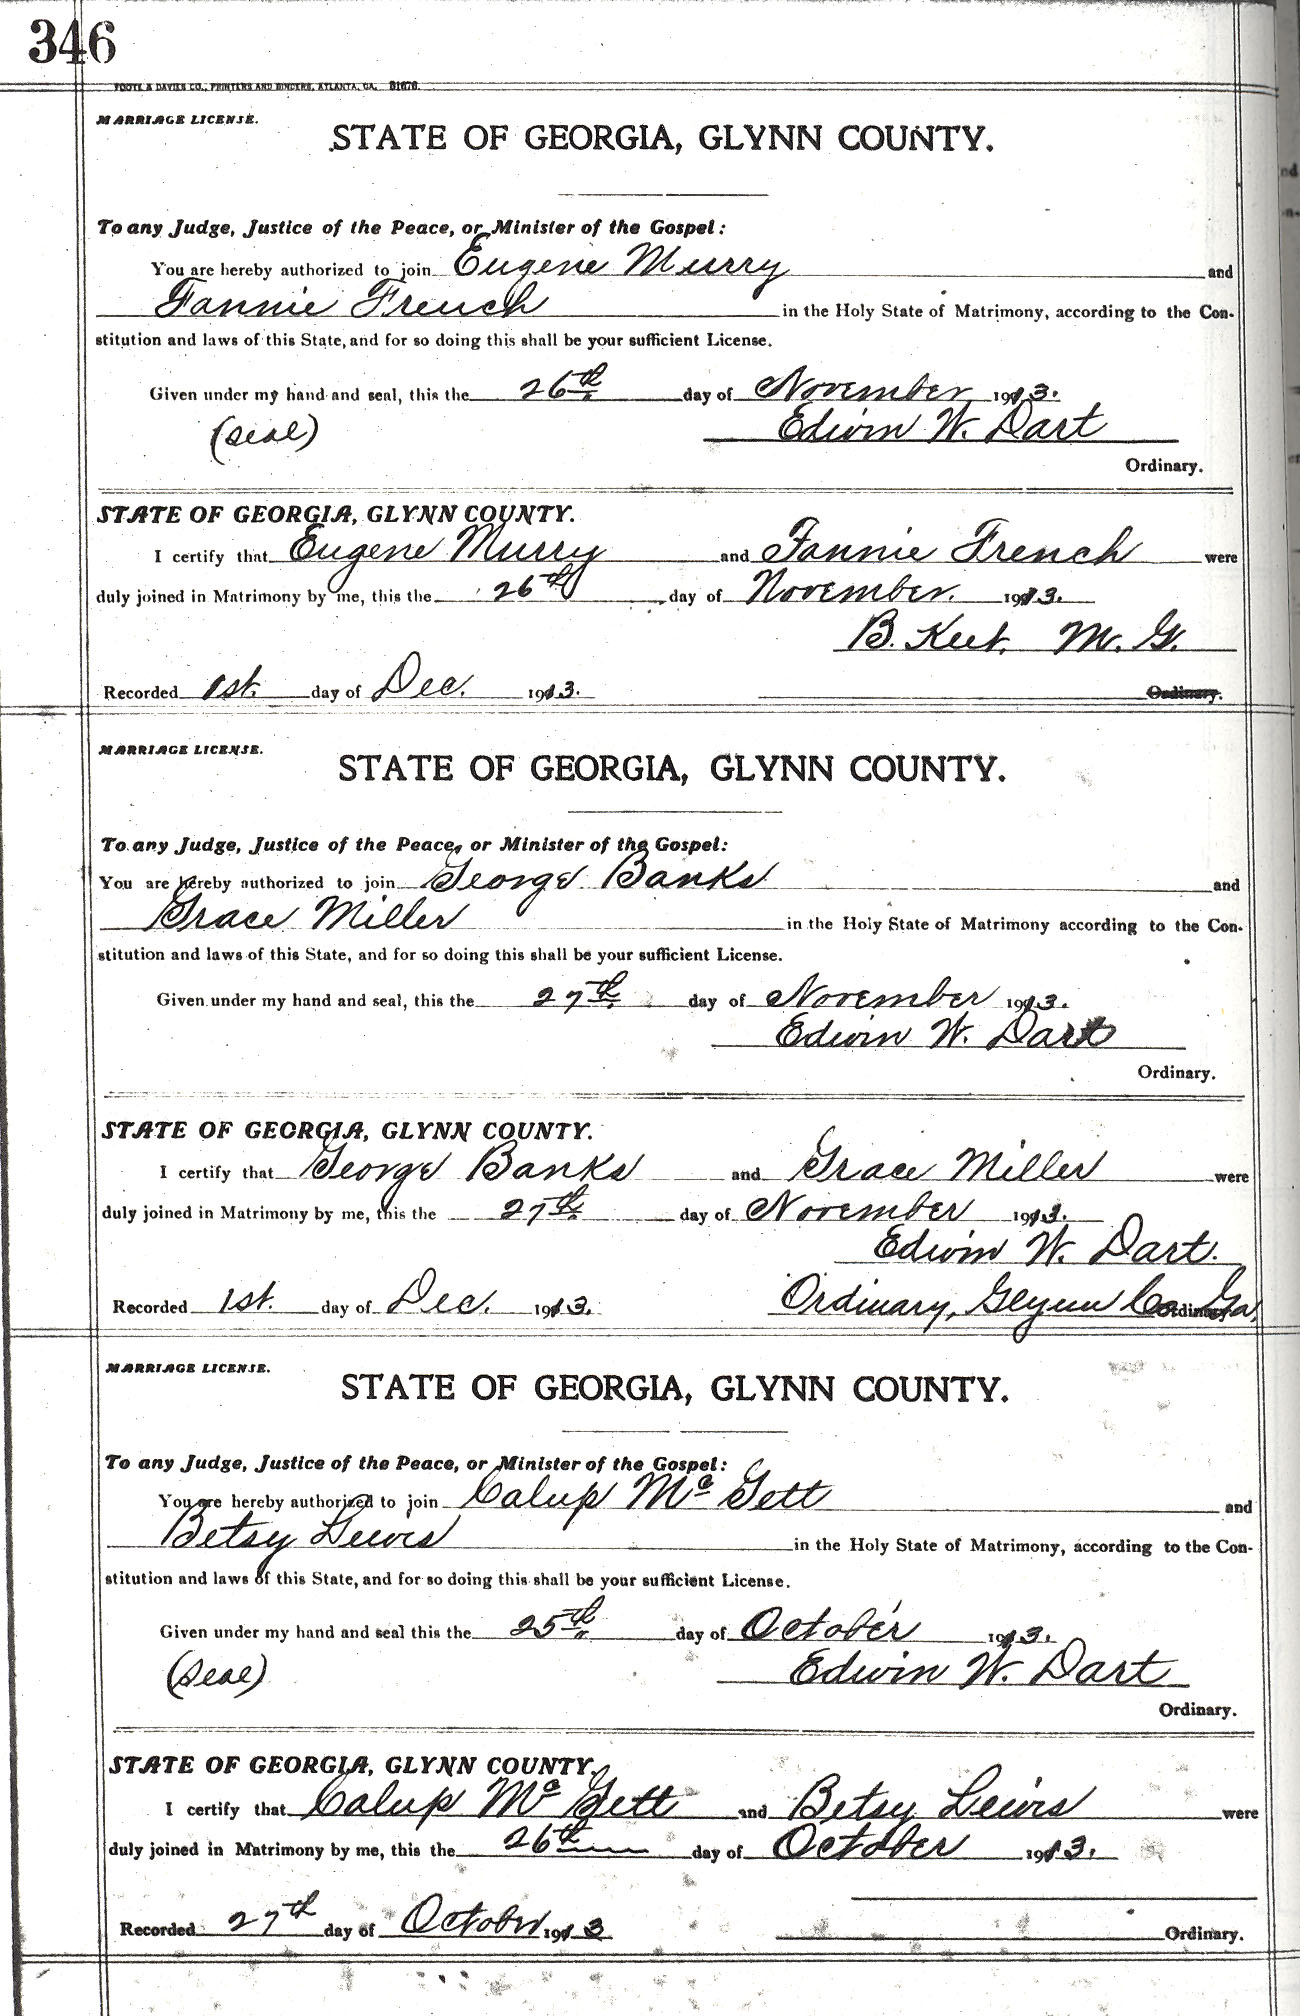 346
FOOTE & DAVIES CO., PRINTERS AND BINDERS, ATLANTA, GA. 81676.
MARRIAGE LICENSE.
STATE OF GEORGIA, GLYNN COUNTY.
To any Judge, Justice of the Peace, or Minister of the Gospel:
You are hereby authorized to join Eugene Murry and
Fannie French in the Holy State of Matrimony, according to the Con-
stitution and laws of this State, and for so doing this shall be your sufficient License.
Given under my hand and seal, this the 26th day of November 1913.
(seal) Edwin W. Dart
Ordinary.
STATE OF GEORGIA, GLYNN COUNTY.
I certify that Eugene Murry and Fannie French were
duly joined in Matrimony by me, this the 26th day of November. 1913.
B. Keet. M. G.
Recorded 1st. day of Dec. 1913. Ordinary.
MARRIAGE LICENSE.
STATE OF GEORGIA, GLYNN COUNTY.
To any Judge, Justice of the Peace, or Minister of the Gospel:
You are hereby authorized to join George Banks and
Grace Miller in the Holy State of Matrimony according to the Con-
stitution and laws of this State, and for so doing this shall be your sufficient License.
Given under my hand and seal, this the 27th day of November 1913.
Edwin W. Dart
Ordinary.
STATE OF GEORGIA, GLYNN COUNTY.
I certify that George Banks and Grace Miller were
duly joined in Matrimony by me, this the 27th day of November 1913.
Edwin W. Dart.
Recorded 1st. day of Dec. 1913. Ordinary, Glynn Co. Ga, Ordinary
MARRIAGE LICENSE.
STATE OF GEORGIA, GLYNN COUNTY.
To any Judge, Justice of the Peace, or Minister of the Gospel:
You are hereby authorized to join Calup Mc Gett and
Betsy Lewis in the Holy State of Matrimony, according to the Con-
stitution and laws of this State, and for so doing this shall be your sufficient License.
Given under my hand and seal this the 25th day of October 1913.
(seal) Edwin W. Dart
Ordinary.
STATE OF GEORGIA, GLYNN COUNTY.
I certify that Calup Mc Gett and Betsy Lewis were
duly joined in Matrimony by me, this the 26th day of October 1913.
Recorded 27th day of October 1913 Ordinary.